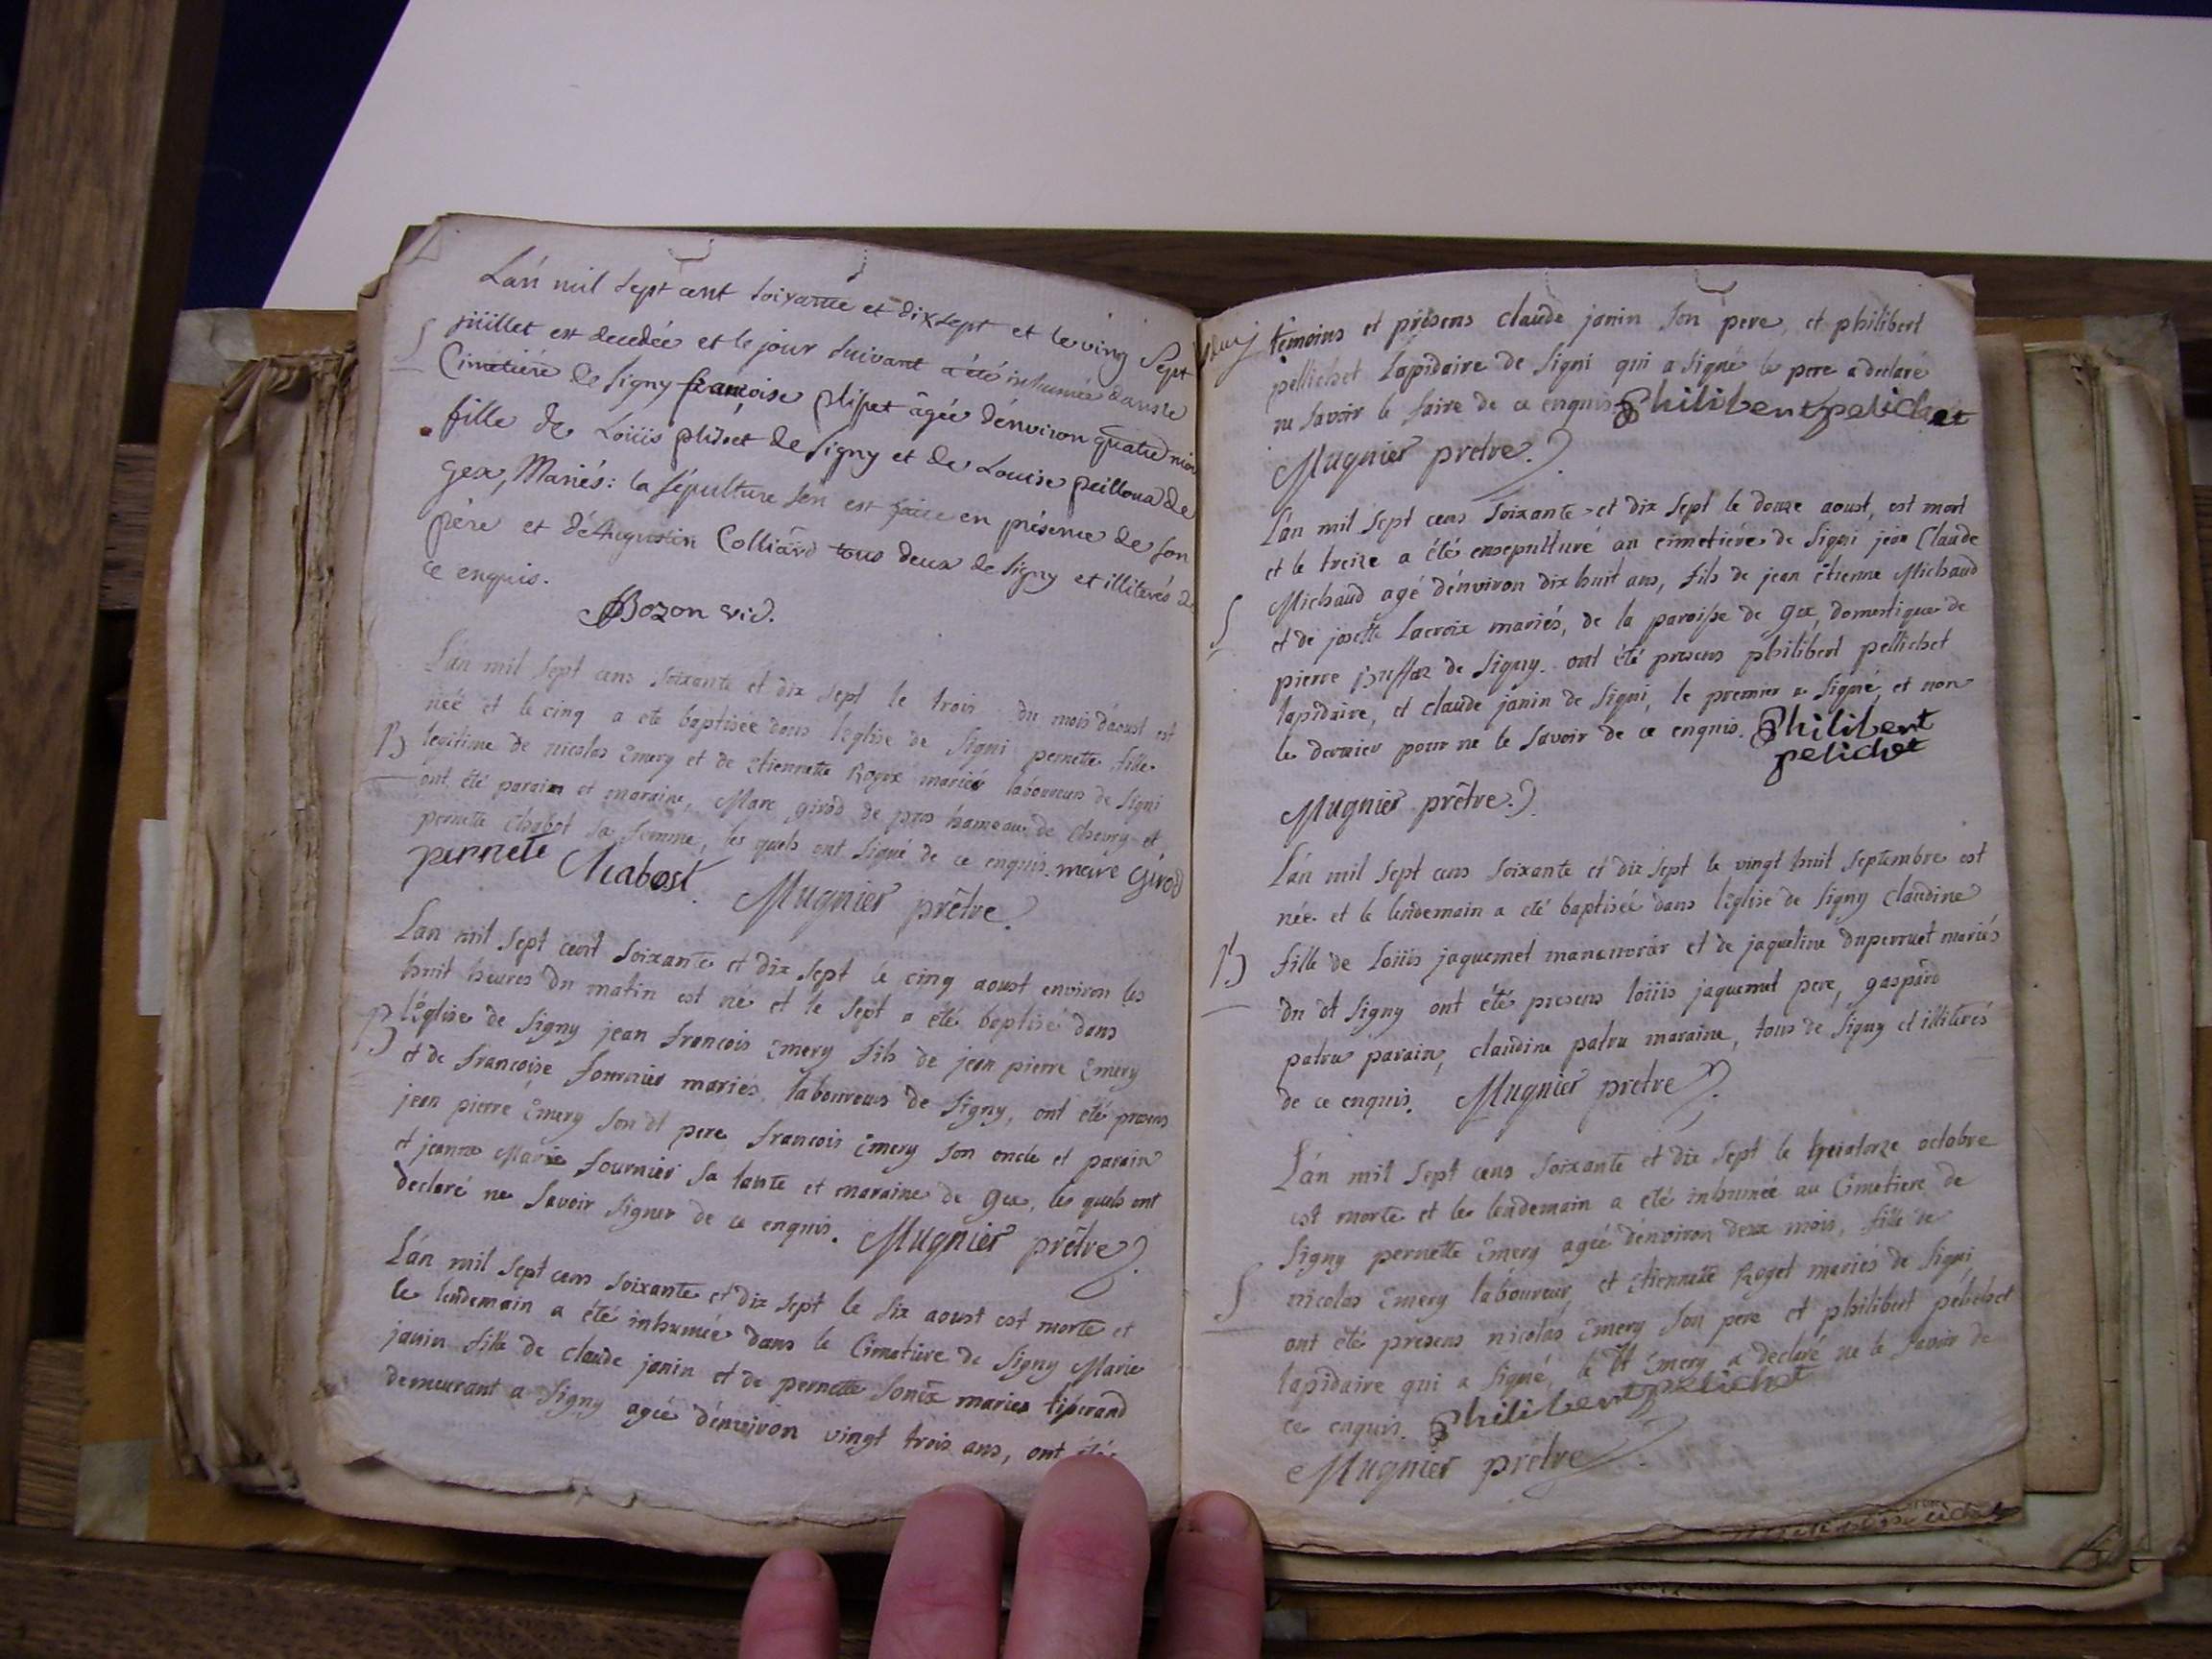 L'an mil sept cent soixante et dix sept et le ving sept
S
juillet est decedée et le jour suivant a été inhumée dans le
Cimetiére de Signy françoise plisset âgée d'environ quatre
fille de Loüis plisset de Signy et de Louise peilloud de
gex, Mariés: la sépulture s'en est faite en présence de son
pére et d'Augustin Colliard tous deux de Signy et illiterés de
ce enquis.
Bozon vic.
L'an mil sept cens soixante et dix sept le trois du mois d'aoust est
née et le cinq a eté baptisée dans l'eglise de Signi pernette fille
B
legitime de nicolas Emery et de Etiennette mariés laboureurs de Signi
ont été parain et maraine, Marc girod de hameau de Chevry et
pernette Chabot sa femme, les quels ont signé de ce enquis. marc Girod
pernete Chabost. Mugnier prêtre.
L'an mil sept cent soixante et dix sept le cinq aoust environ les
huit heures du matin est né et le sept a été baptisé dans
B
l'église de Signy jean françois Emery fils de jean pierre Emery
et de françoise fournier mariés, laboureurs de Signy, ont eté presens
jean pierre Emery son dt pere, françois Emery son oncle et parain
et jeanne Marie fournier sa tante et maraine de Gex, les quels ont
declaré ne savoir signer de ce enquis. Mugnier prêtre.
L'an mil sept cens soixante et dix sept le six aoust est morte et
le lendemain a été inhumée dans le Cimetiere de Signy Marie
janin fille de claude janin et de pernette mariés tisserand
demeurant a Signy agée d'environ vingt trois ans, ont été
témoins et présens claude janin son pere, et philibert
pellichet lapidaire de Signi qui a signé le pere a declaré
ne savoir le faire de ce enquis. Philibert pelichet
Mugnier prêtre.
L'an mil sept cens soixante et dix sept le douze aoust, est mort
et le treize a été ensepulturé au cimetiére de Signi jean Claude
Michaud agé d'environ dix huit ans, fils de jean étienne Michaud
S
et de josette Lacroix mariés, de la paroisse de gex, domestique de
pierre de Signy. ont été presens philibert pellichet
lapidaire, et claude janin de Signi, le premier a signé, et non
le dernier pour ne le savoir de ce enquis. Philibert
pelichet
Mugnier prêtre.
L'an mil sept cens soixante et dix sept le vingt huit septembre est
née et le lendemain a eté baptisée dans l'eglise de Signy claudine
B
fille de Loüis jaquemet et de jaqueline duperruet mariés
du dt Signy ont été presens loüis jaquemet pere, gaspard
patru parain, claudine patru maraine, tous de Signy et illiterés
de ce enquis. Mugnier prêtre.
L'an mil sept cens soixante et dix sept le octobre
est morte et le lendemain a eté inhumée au Cimetiere de
Signy pernette Emery agée d'environ deux mois, fille de
S
nicolas Emery laboureur, et Etiennette Roget mariés de Signi
ont été presens nicolas Emery son pere et philibert pelichet
lapidaire qui a signé, le dt Emery a declaré ne le savoir de
ce enquis. Philibert pelichet
Mugnier prêtre